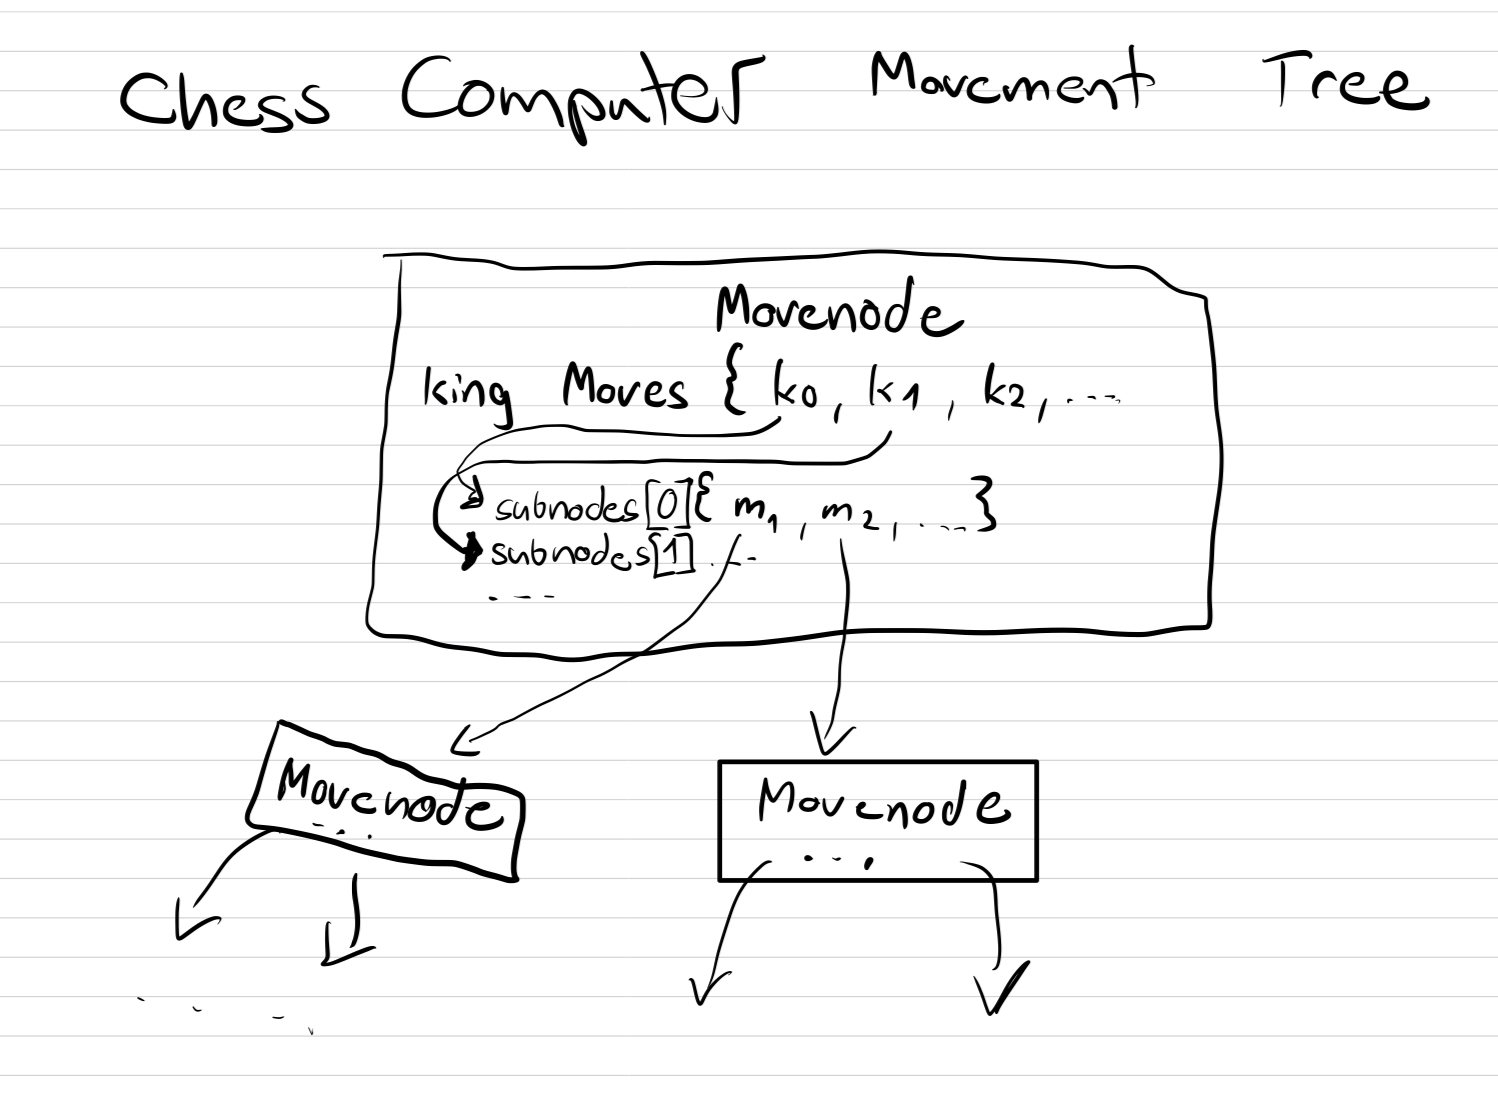 Chess Computer Movement Tree
Movenode
king Moves { k0, k1, k2, ....
subnodes[0]{ m1, m2, .... }
subnodes[1] ...
....
Movenode
....
Movenode
...,
....